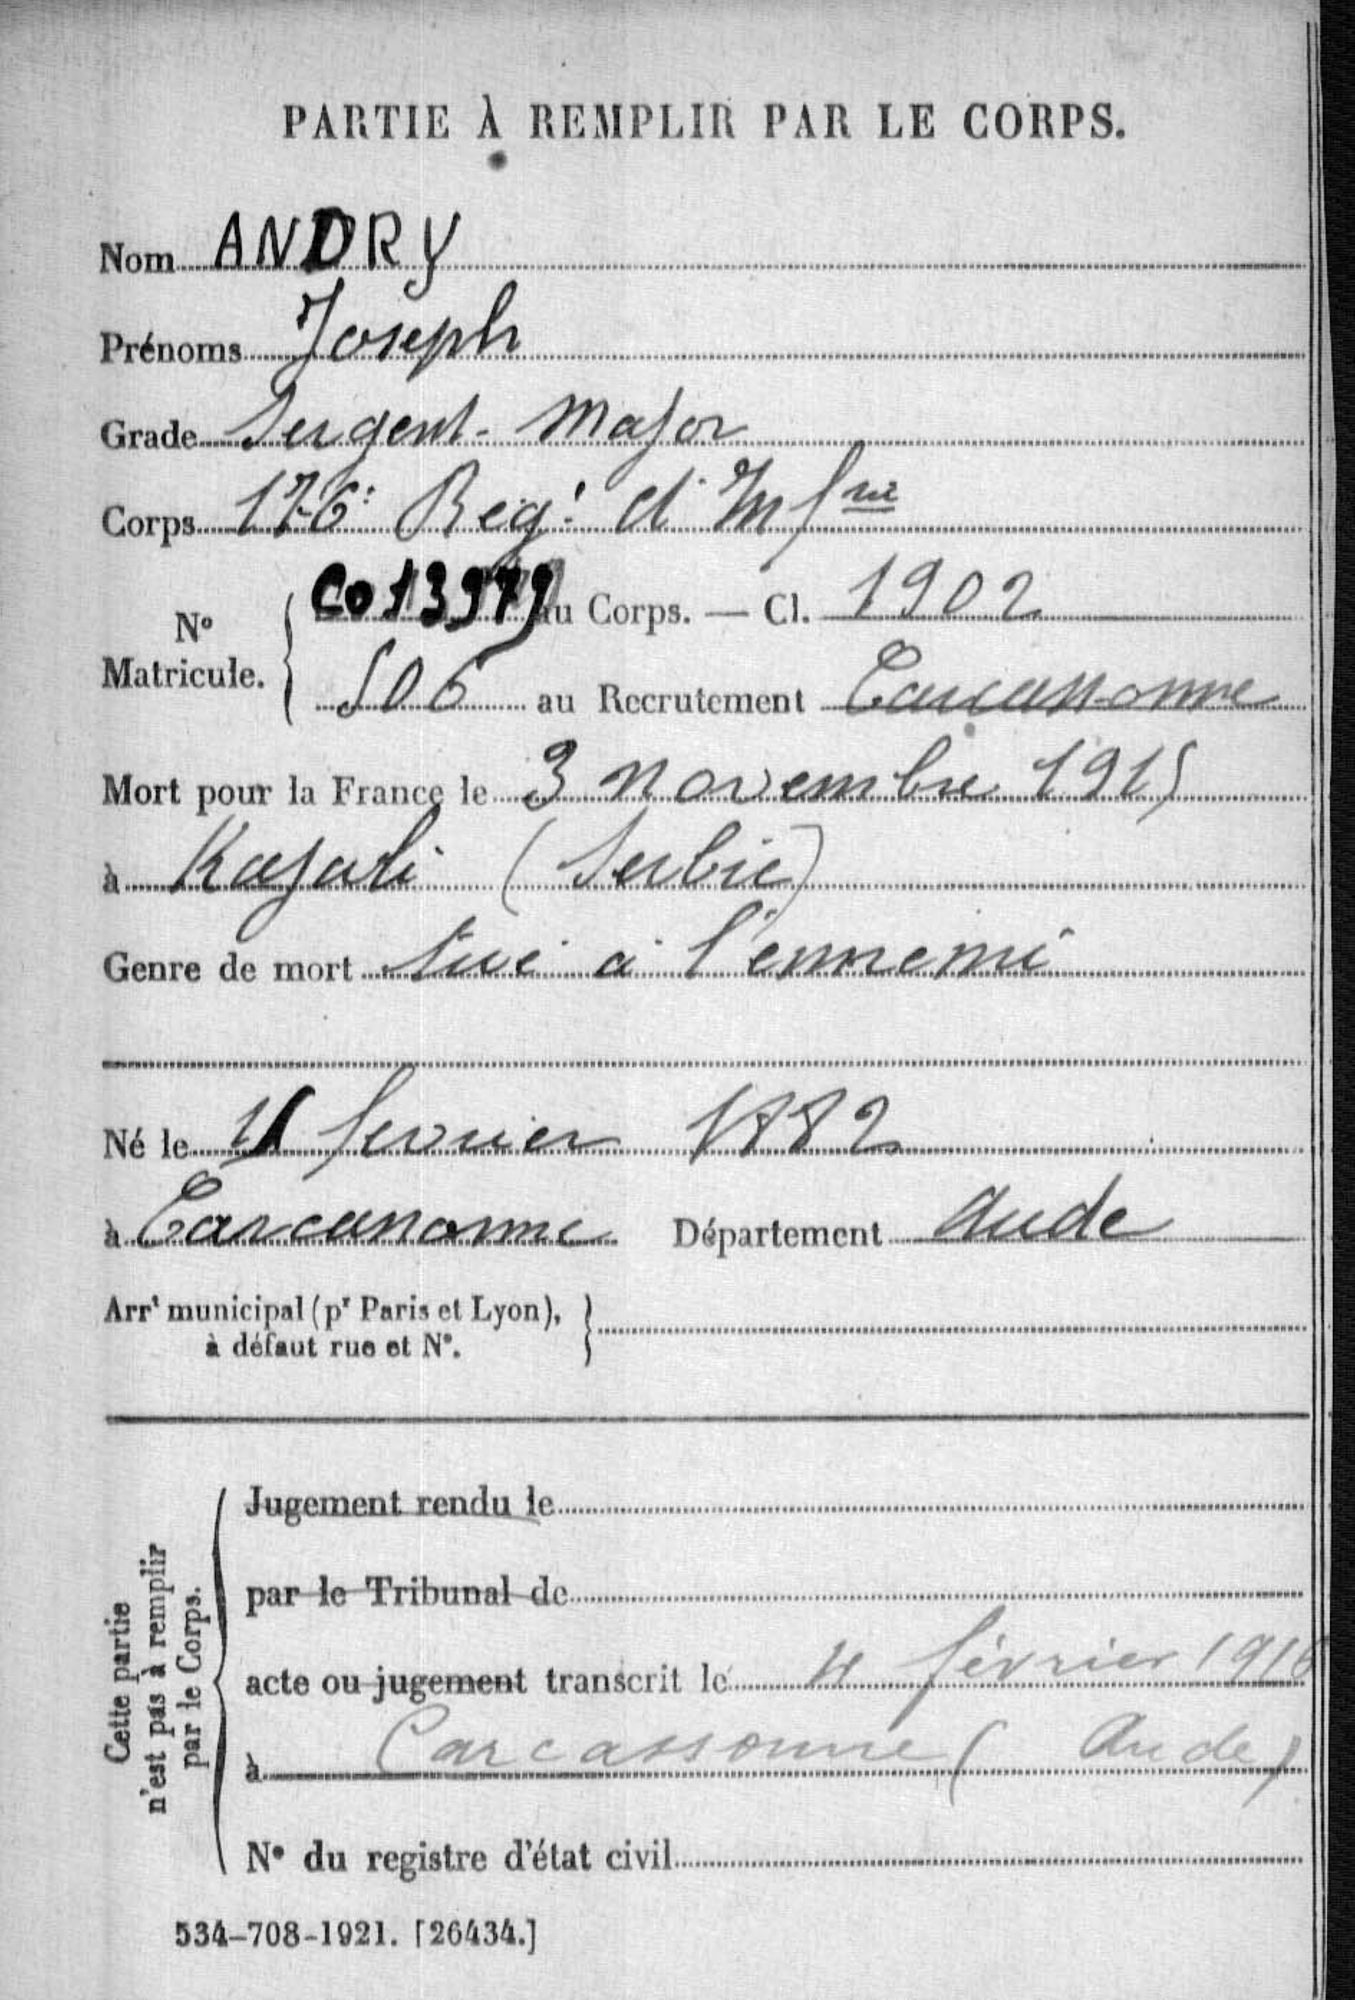 PARTIE À REMPLIR PAR LE CORPS.
Nom ANDRY
Prénoms Joseph
Grade Sergent-Major
Corps 176e Regt d'Infrie
No Matricule. { Co 13979 au Corps. — Cl. 1902
506 au Recrutement Carcassonne
Mort pour la France le 3 novembre 1915
à Kajali (Serbie)
Genre de mort Tué à l'ennemi
Né le février 1882
à Carcassonne Département Aude
Arrt municipal (pr Paris et Lyon),
à défaut rue et No.
Cette partie
n'est pas à remplir
par le Corps.
Jugement rendu le
par le Tribunal de
acte ou jugement transcrit le 4 février 1916
à Carcassonne (Aude)
No du registre d'état civil
534-708-1921. [26434.]